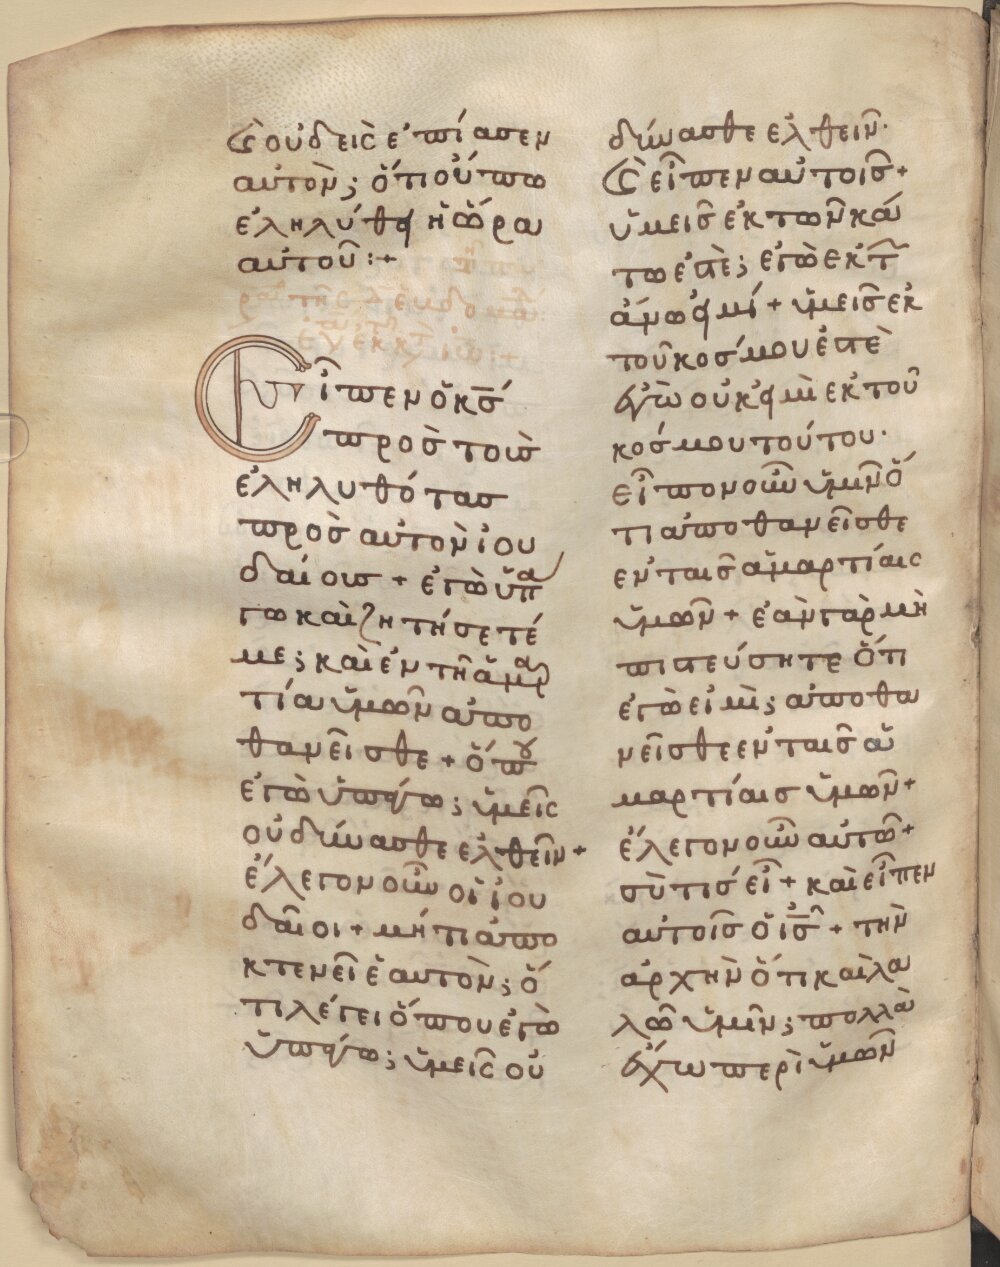 Ϗ οὐδεὶς ἐπίασεν
αὐτὸν; ὅτι οὔπω
ἐληλύθει ἡ ὥρα
αὐτοῦ:+
Εἶπεν ὁ κ̅σ̅
πρὸς τοὺς
ἐληλυθότας
πρὸς αὐτὸν ἰου
δαίους + ἐγὼ ὑπά
γω καὶ ζητήσετέ
με; καὶ ἐν τῇ ἁμαρ
τία ὑμῶν ἀπο
θανεῖσθε + ὅπου
ἐγὼ ὑπάγω; ὑμεῖς
οὐ δύνασθε ἐλθεῖν +
ἔλεγον οὖν οἱ ἰου
δαῖοι + μήτι ἀπο
κτενεῖ ἑαυτὸν; ὅ
τι λέγει ὅπου ἐγὼ
ὑπάγω; ὑμεῖς οὐ
δύνασθε ἐλθεῖν·
Ϗ εἶπεν αὐτοῖς +
ὑμεῖς ἐκ τῶν κά
τω ἐστὲ; ἐγὼ ἐκ τῶ
ἄνω εἰμί + ὑμεῖς ἐκ
τοῦ κόσμου ἐστὲ
ἐγὼ οὐκ εἰμὶ ἐκ τοῦ
κόσμου τούτου·
εἶπον οὖν ὑμῖν ὅ
τι ἀποθανεῖσθε
ἐν ταῖς ἁμαρτίαις
ὑμῶν + ἐὰν γὰρ μὴ
πιστεύσητε ὅτι
ἐγὼ εἰμὶ; ἀποθα
νεῖσθε ἐν ταῖς ἁ
μαρτίαις ὑμῶν +
ἔλεγον οὖν αὐτῶ +
σὺ τίς εἶ + καὶ εἶπεν
αὐτοῖς ὁ ι̅ς̅ + τὴν
ἀρχὴν ὅτι καὶ λα
λῶ ὑμῖν; πολλὰ
ἔχω περὶ ὑμῶν